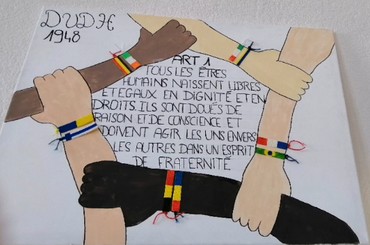 DUDH
1948
ART 1
TOUS LES ÊTRES
HUMAINS NAISSENT LIBRES
ET EGAUX EN DIGNITÉ ET EN
DROITS. ILS SONT DOUÉS DE
RAISON ET DE CONSCIENCE ET
DOIVENT AGIR LES UNS ENVERS
LES AUTRES DANS UN ESPRIT
DE FRATERNITÉ